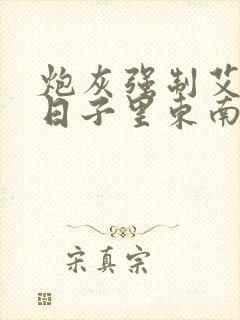 炮灰强制艾
日子里东南
宋真宗